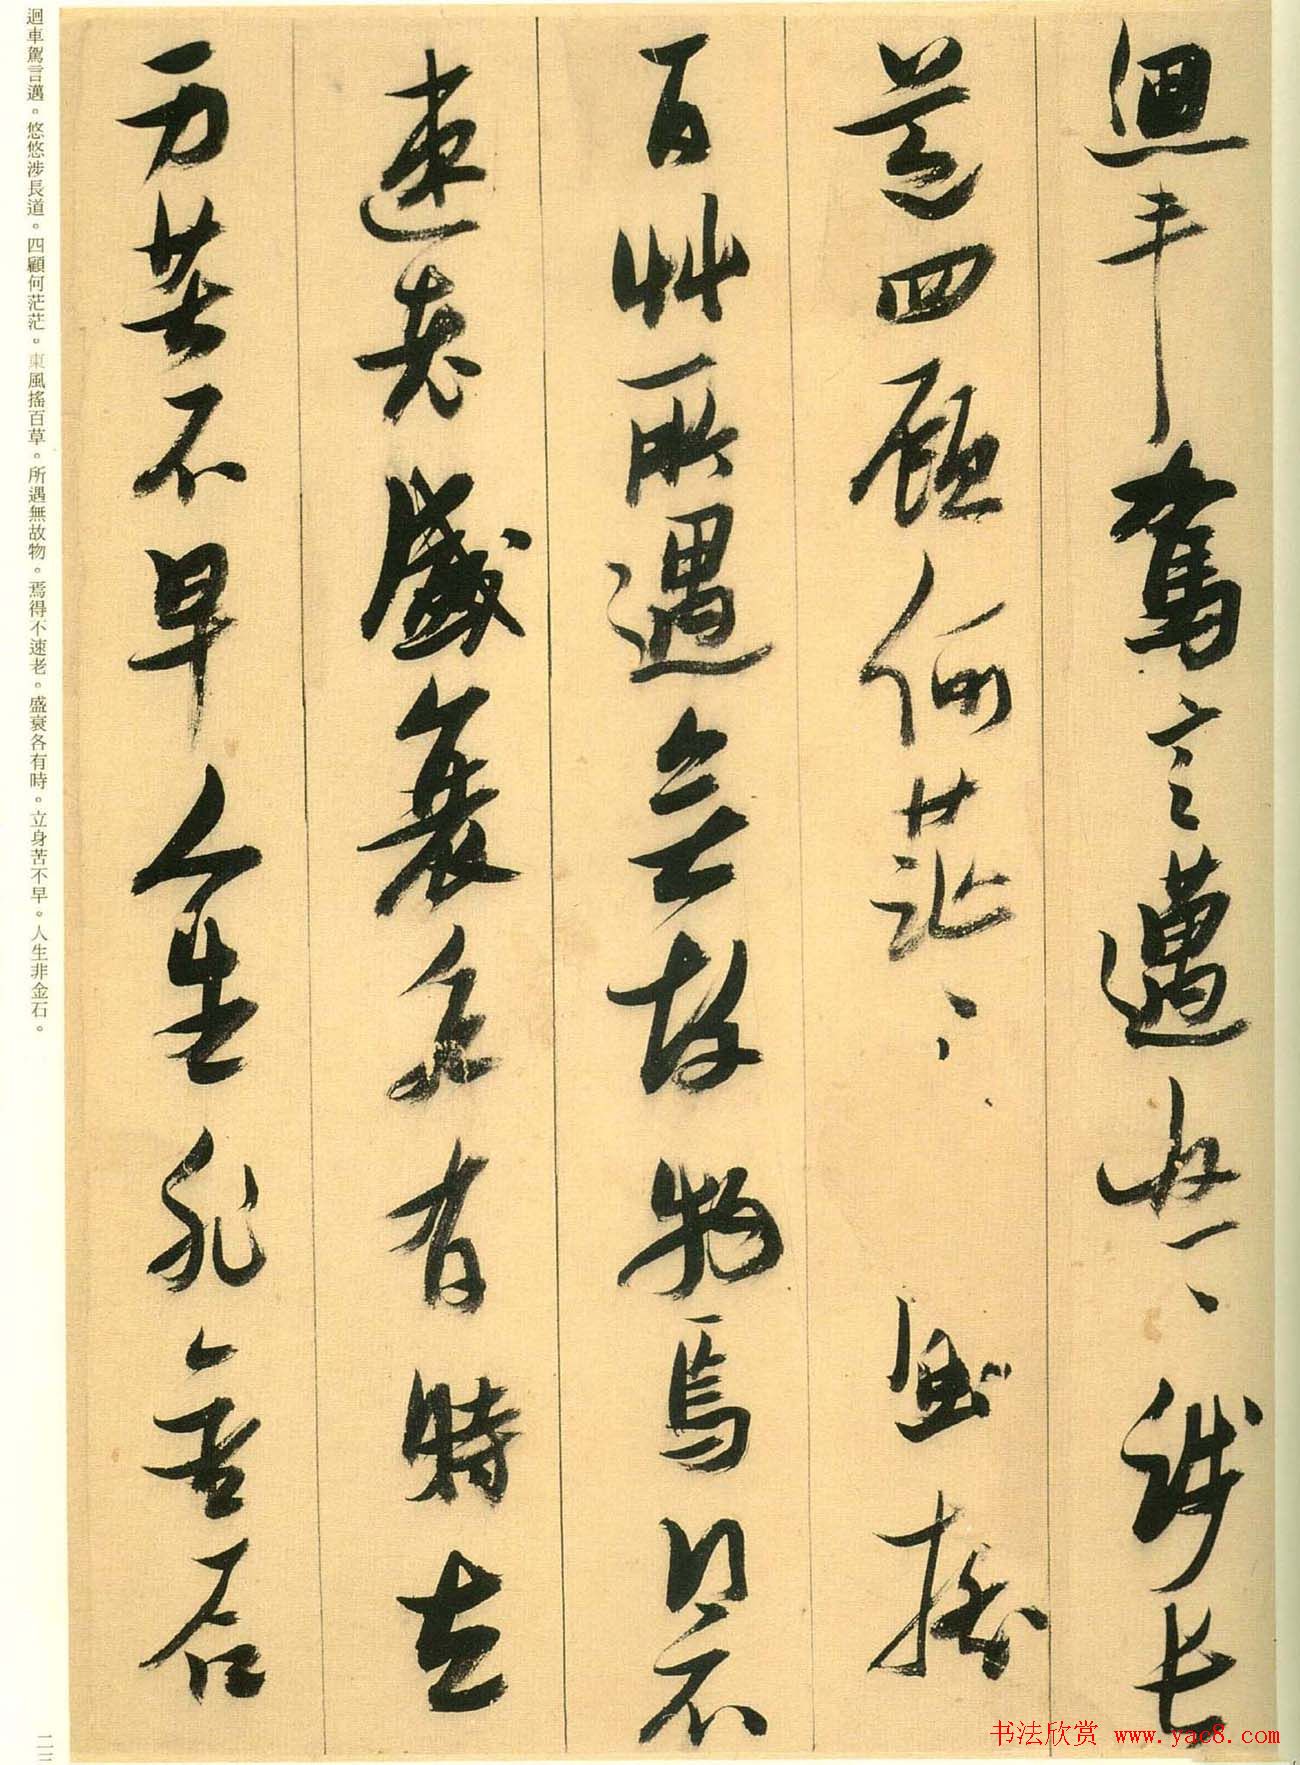 迴車駕言邁悠〻涉長
道四顧何茫〻風搖
百艸所遇無故物焉得不
速老盛衰各有時立
身苦不早人生非金石
迴車駕言邁。悠悠涉長道。四顧何茫茫。東風搖百草。所遇無故物。焉得不速老。盛衰各有時。立身苦不早。人生非金石。
书法欣赏 www.yac8.com